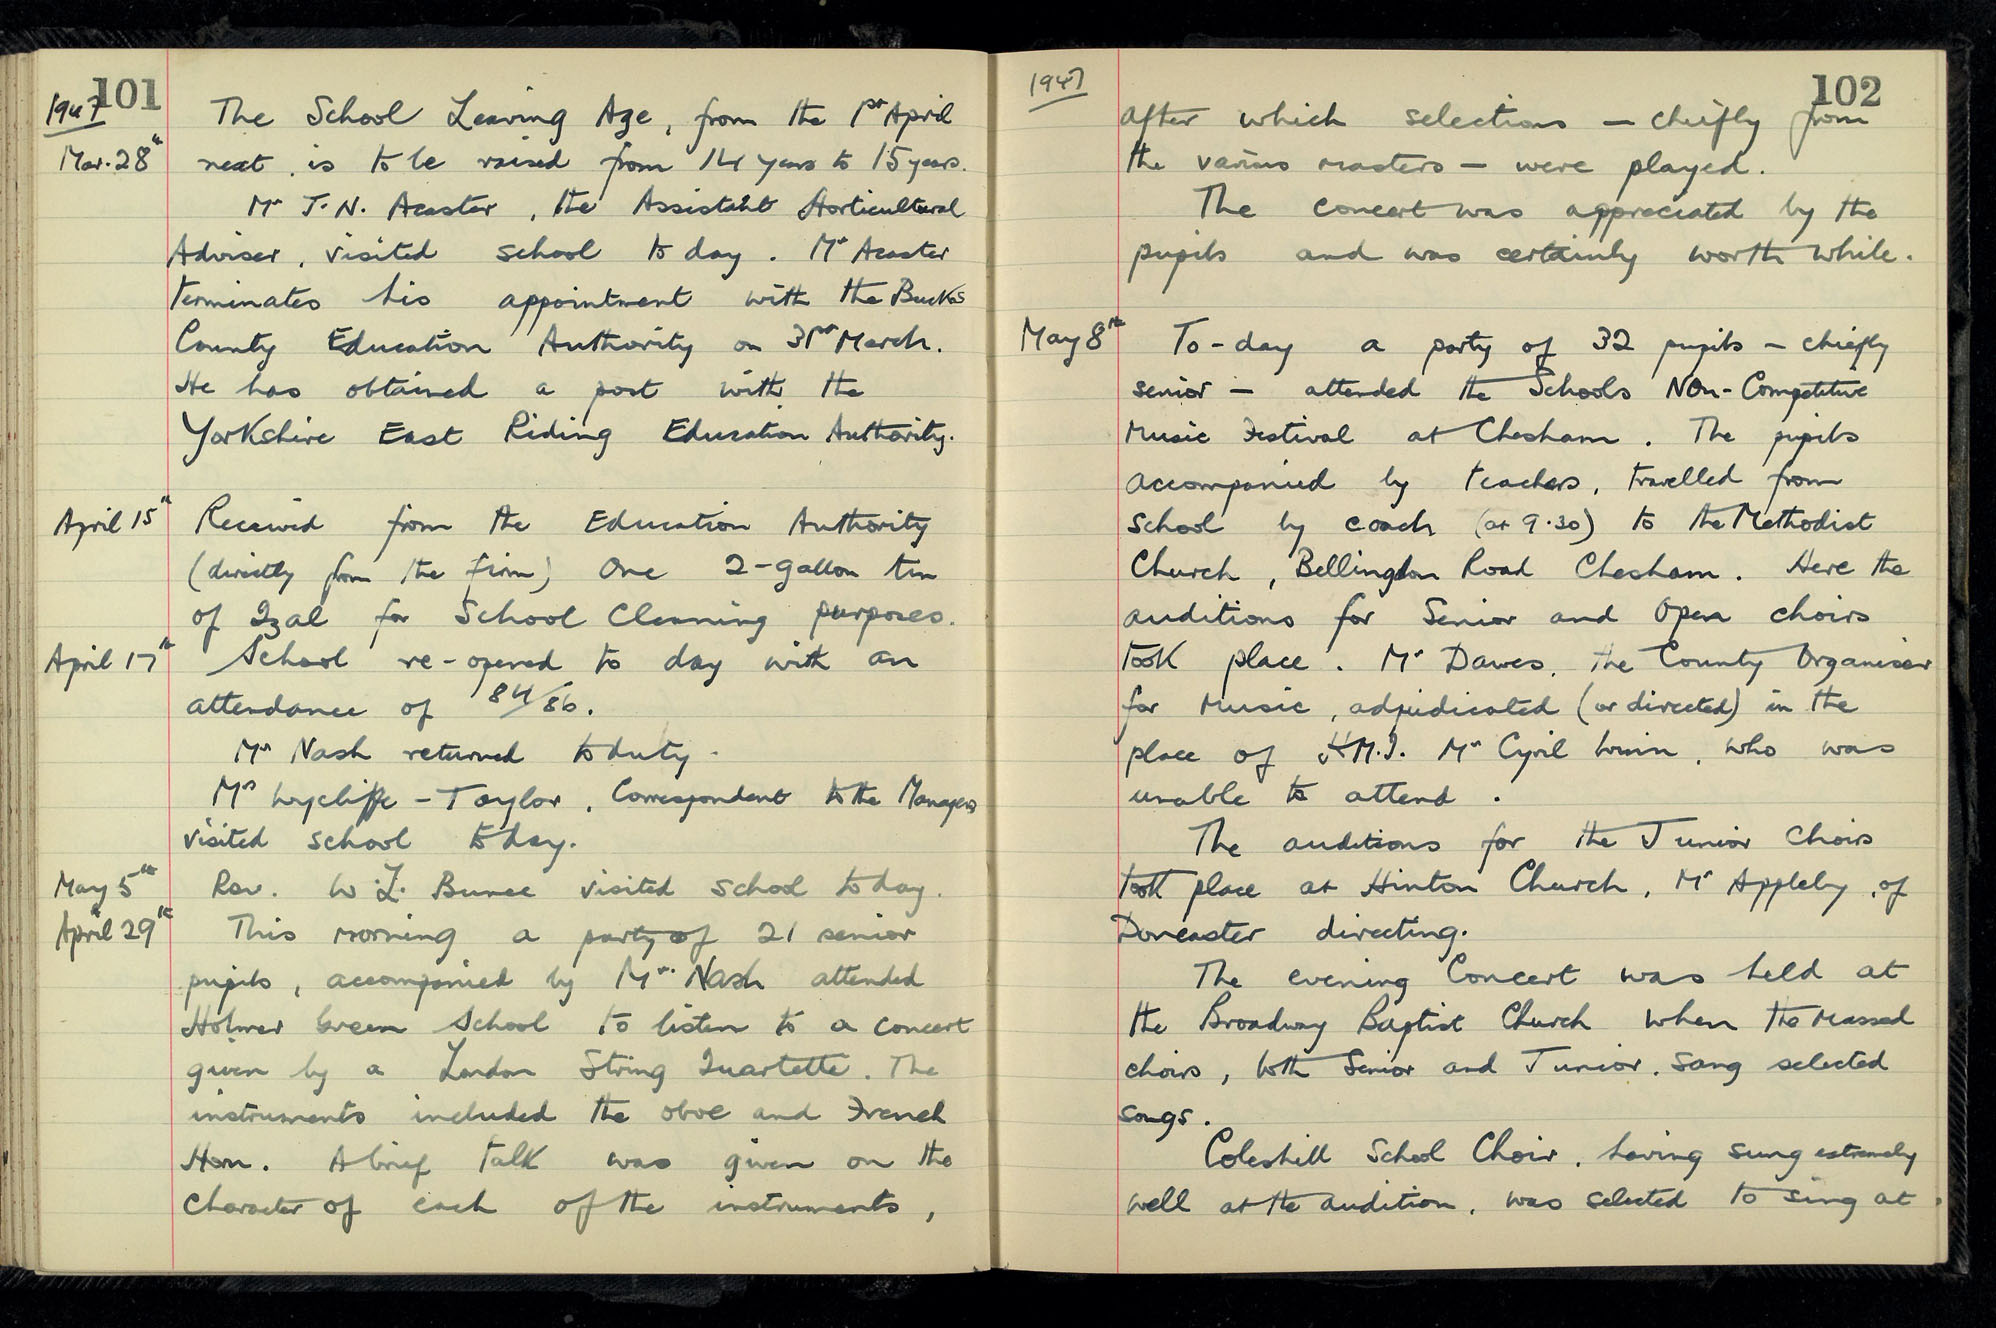 101
1947
The School Leaving Age, from the 1st April
Mar. 28th next, is to be raised from 14 years to 15 years.
Mr J. N. Acaster, the Assistant Horticultural
Adviser, visited school to day. Mr Acaster
terminates his appointment with the Bucks
County Education Authority on 31st March.
He has obtained a post with the
Yorkshire East Riding Education Authority.
April 15th Received from the Education Authority
(directly from the firm) One 2-gallon tin
of Izal for School Cleaning purposes.
April 17th School re-opened to day with an
attendance of 84/86.
Mr Nash returned to duty.
Mrs Wycliffe-Taylor, Correspondent to the Managers
visited school to day.
May 5th Rev. W. L. Bunce visited school to day.
April 29th This morning a party of 21 senior
pupils, accompanied by Mr. Nash attended
Holmer Green School to listen to a concert
given by a London String Quartette. The
instruments included the oboe and French
Horn. A brief talk was given on the
character of each of the instruments,
102
1947
after which selections — chiefly from
the various masters — were played.
The concert was appreciated by the
pupils and was certainly worth while.
May 8th To-day a party of 32 pupils — chiefly
senior — attended the Schools Non-Competitive
Music Festival at Chesham. The pupils
accompanied by teachers, travelled from
school by coach (at 9.30) to the Methodist
Church, Bellingdon Road Chesham. Here the
auditions for Senior and Open choirs
took place. Mr Dawes, the County Organiser
for Music, adjudicated (or directed) in the
place of H.M.I. Mr Cyril Winn, who was
unable to attend.
The auditions for the Junior Choirs
took place at Hinton Church, Mr Appleby, of
Doncaster directing.
The evening Concert was held at
the Broadway Baptist Church when the massed
choirs, both Senior and Junior, sang selected
songs.
Coleshill School Choir, having sung extremely
well at the audition, was selected to sing at